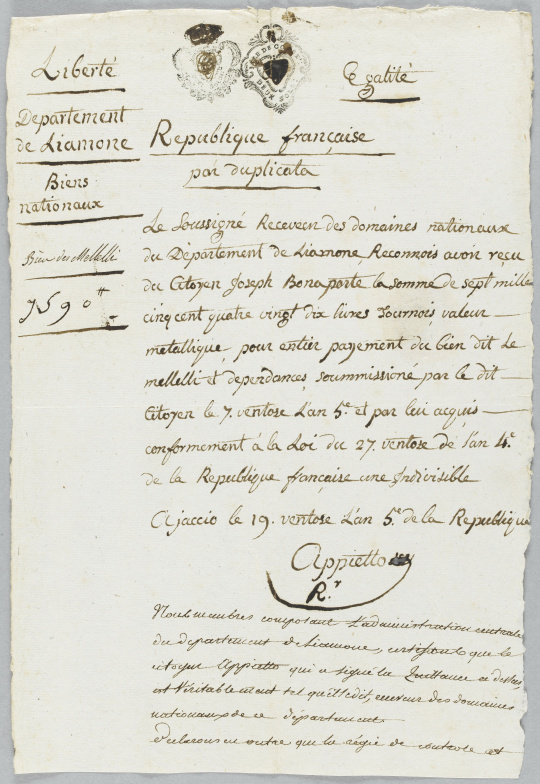 Liberté
Egalité
Departement
de Liamone
Republique française
par duplicata
Biens
nationaux
Bien des Mellelli
7590 ₶
Le Soussigné Receveur des domaines nationaux
du Département de Liamone Reconnois avoir reçu
du Citoyen Joseph Bonaparte la somme de sept mille
cinqcent quatre vingt dix livres Tournois valeur
metallique, pour entier payement du bien dit Le
mellelli et dependances, soummissioné par le dit
Citoyen le 7. ventose L'an 5.e et par lui acquis
conformement à la Loi du 27. ventose de l'an 4.e
de la Republique française une Indivisible
Ajaccio le 19. ventose L'an 5.e de la Republique
Appietto
R.r
Nous membres composant L'administration centrale
du departement de Liamone, certifions que le
citoyen Appietto qui a signé la Quittance ci dessus,
est Véritablement tel qu'il se dit, receveur des domaines
nationaux de ce département
Déclarons en outre que la régie de controle et